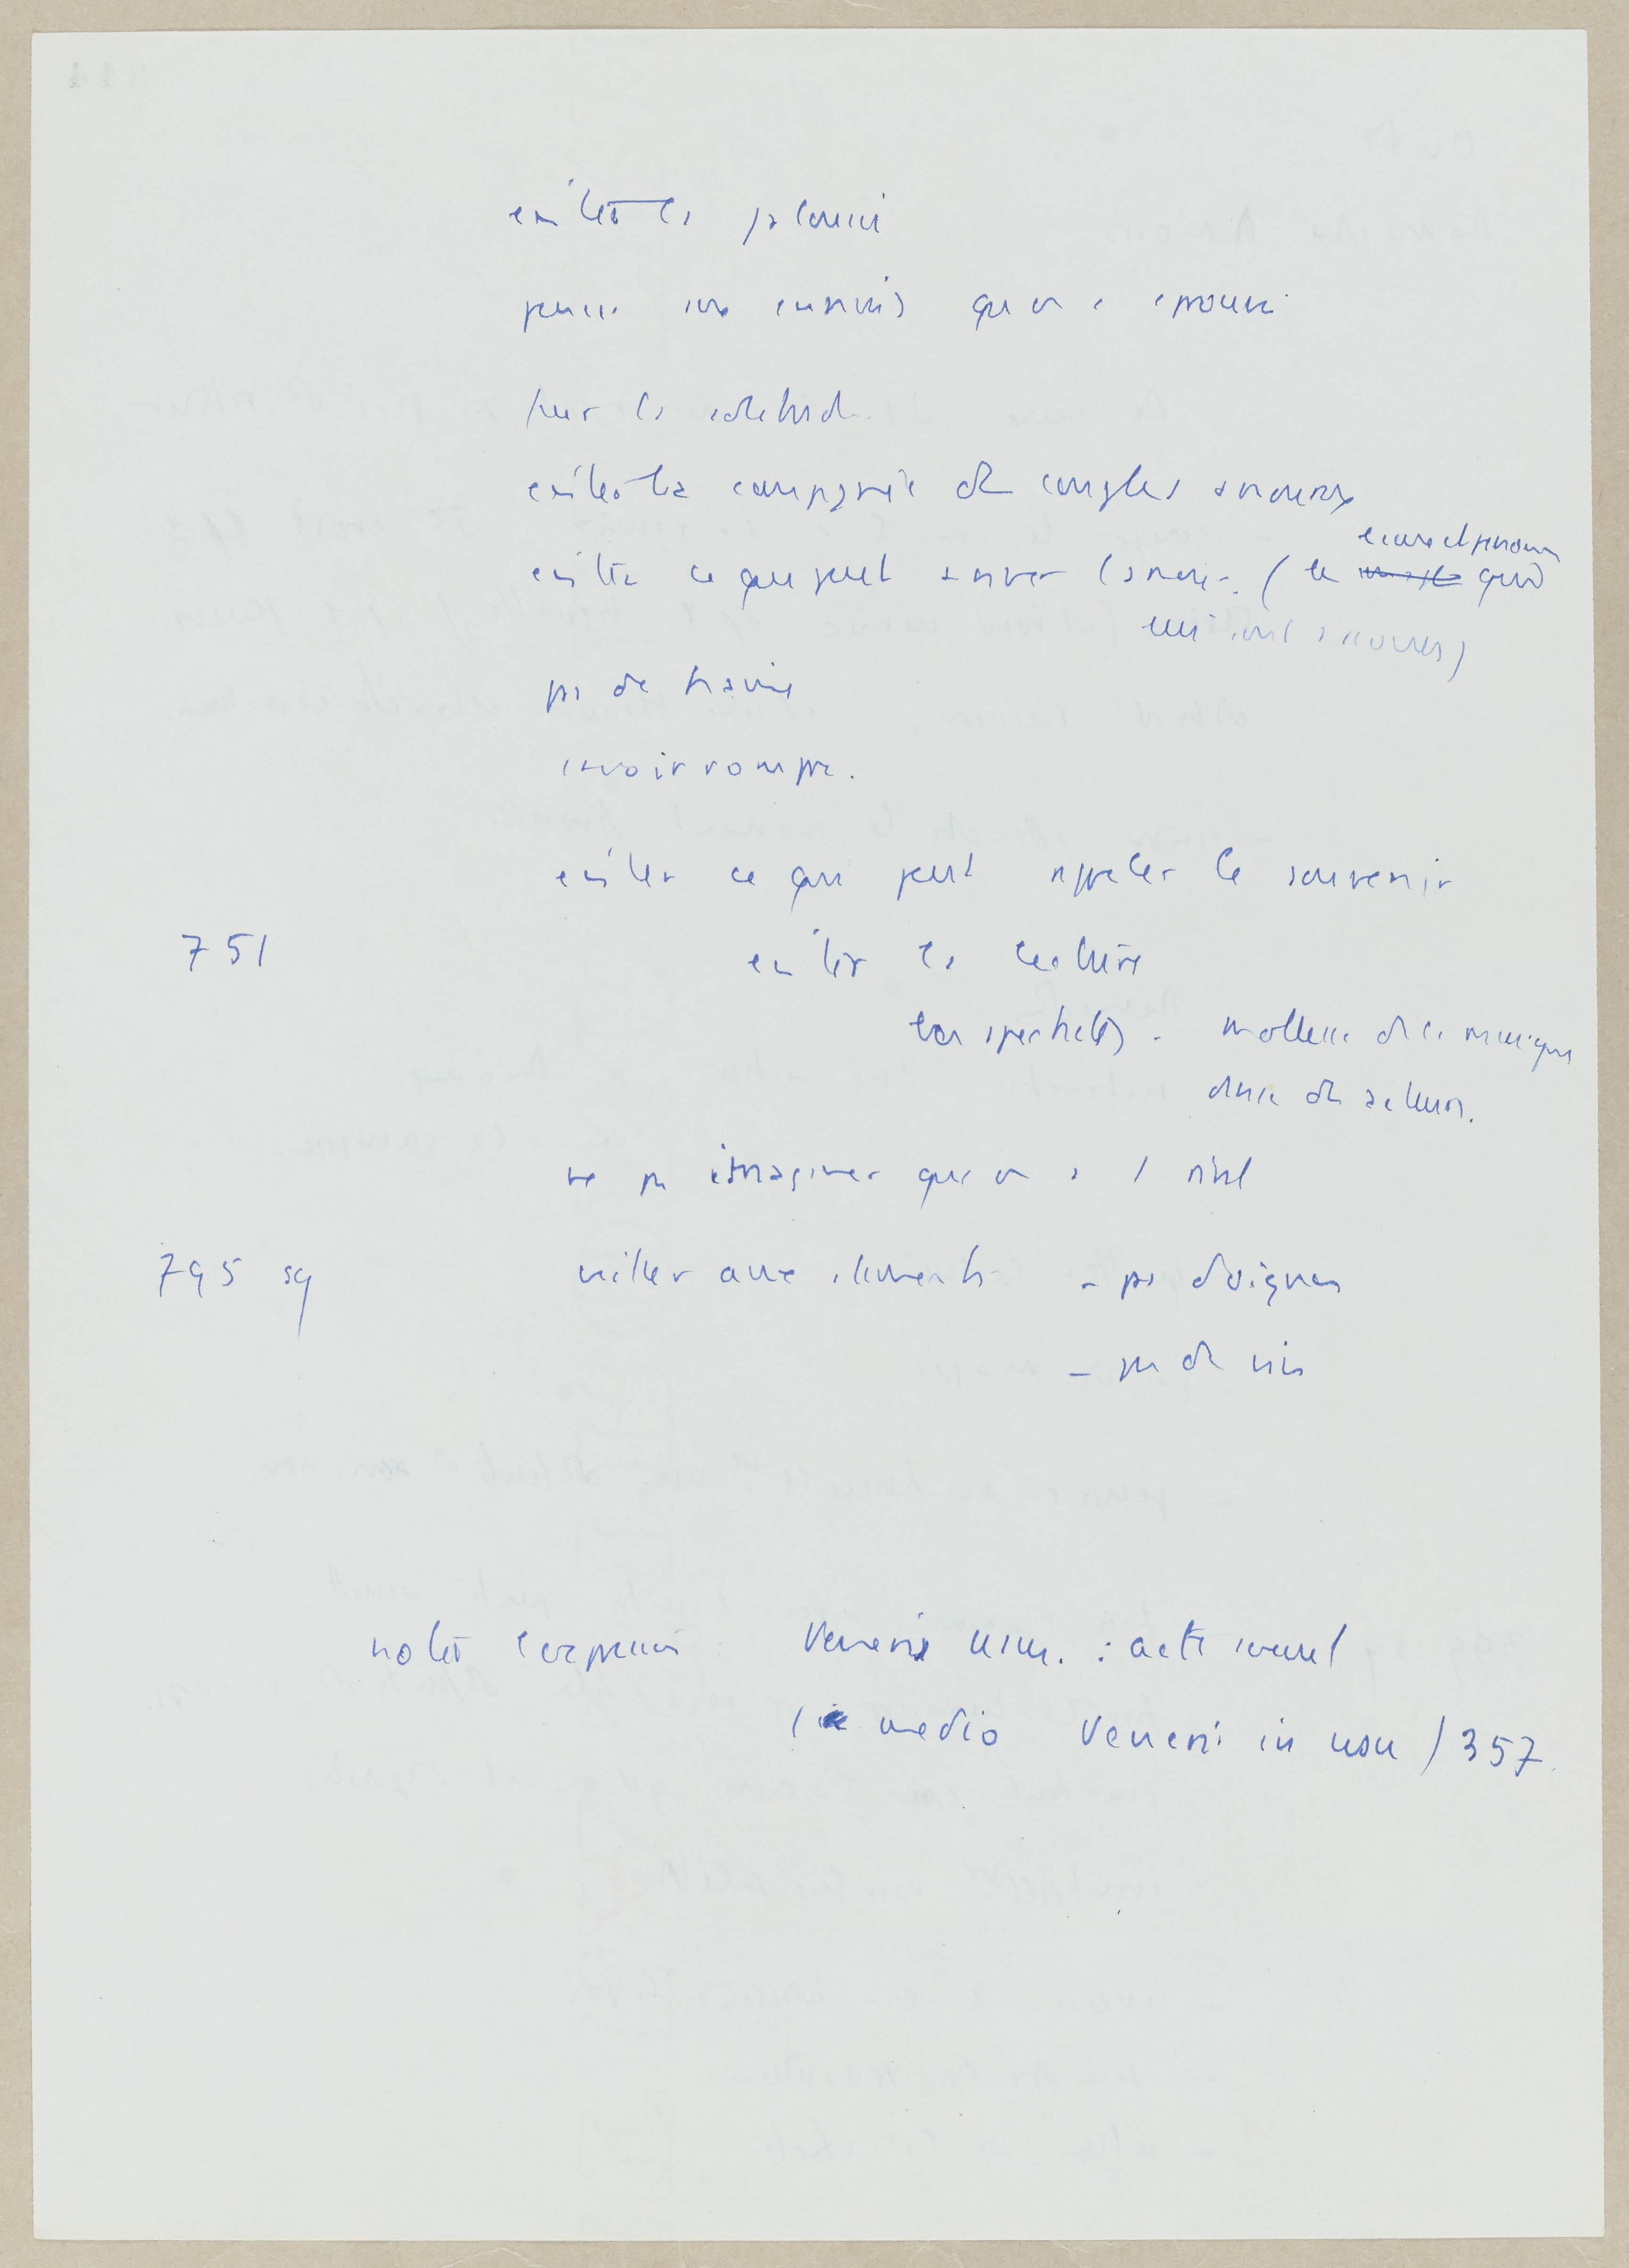 éviter la jalousie
penser aux ennuis qu'on a éprouvé
fuir la solitude
éviter la compagnie de couples amoureux
éviter ce qui peut aviver l'amour. (la qui
pas de
savoir rompre.
éviter ce qui peut rappeler le souvenir
751 éviter la lecture
les spectacles. mollesse de la musique
danse des acteurs.
ne pas imaginer qu'on a 1 rival
795 sq veiller aux aliments – pas d'oignon
– pas de vin
noter l'expression : Veneris usu. : acte sexuel
( medio Veneris in usu) 357.